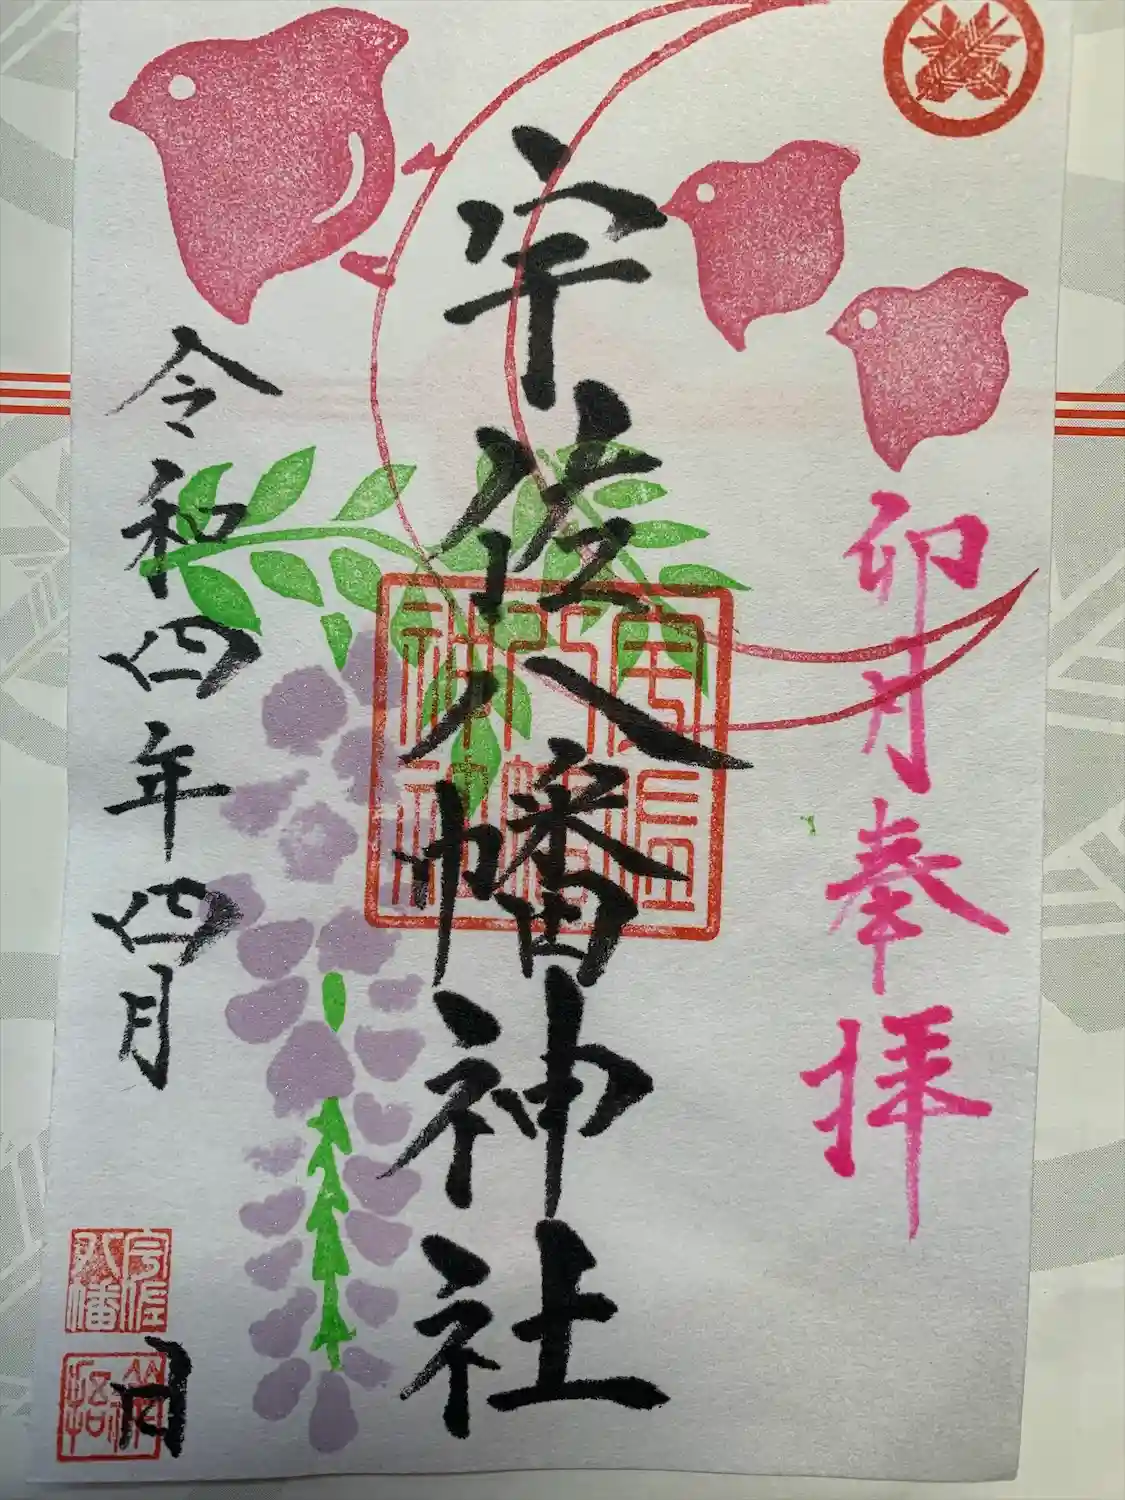 卯月奉拝
宇佐八幡神社
令和四年四月 日
宇佐八幡神社
宇佐八幡